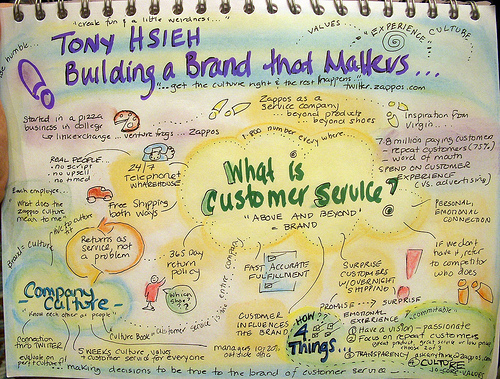 "create fun & a little weirdness..."
TONY HSIEH
VALUES
EXPERIENCE CULTURE
be humble...
Building a Brand that Matters...
"...get the culture right & the rest happens."
twitter.zappos.com
Started in a pizza
business in college
linkexchange... venture frogs... Zappos
Zappos as a
service company
beyond products
beyond shoes
Inspiration from
Virgin...
1-800 number every where...
7.8 million paying customers
- repeat customers (75%)
- word of mouth
SPEND ON CUSTOMER
EXPERIENCE
(vs. advertising)
REAL PEOPLE...
no script
no upsell
24/7
Telephone
WAREHOUSE
What is
Customer Service?
"ABOVE AND BEYOND"
= BRAND
Each employee...
What does the
Zappos culture
mean to me"
Free Shipping
both ways
PERSONAL,
EMOTIONAL
CONNECTION
Returns as
service, not
a problem
Brand = Culture
365 Day
return
policy
is the entire company
FAST, ACCURATE
FULFILLMENT
SURPRISE
CUSTOMERS
W/OVERNIGHT
SHIPPING
IF WE DON'T
have it, refer
to competitor
who does
Company
Culture -
"Know each other as people"
Which
shoe?
"Culture Book"
customer service
CUSTOMER
INFLUENCES
THE BRAND
HOW??
4
Things...
PROMISE ---> SURPRISE
EMOTIONAL
EXPERIENCE
"committable"
① Have a vision - passionate
② Focus on repeat customers
③ TRANSPARENCY
④ CULTURE
10 CORE VALUES
Connection
thru TWITTER
5 WEEKS culture values
+ customer serv. for everyone
managers 10/20%
outside ofc
... making decisions to be true to the brand of customer service ...